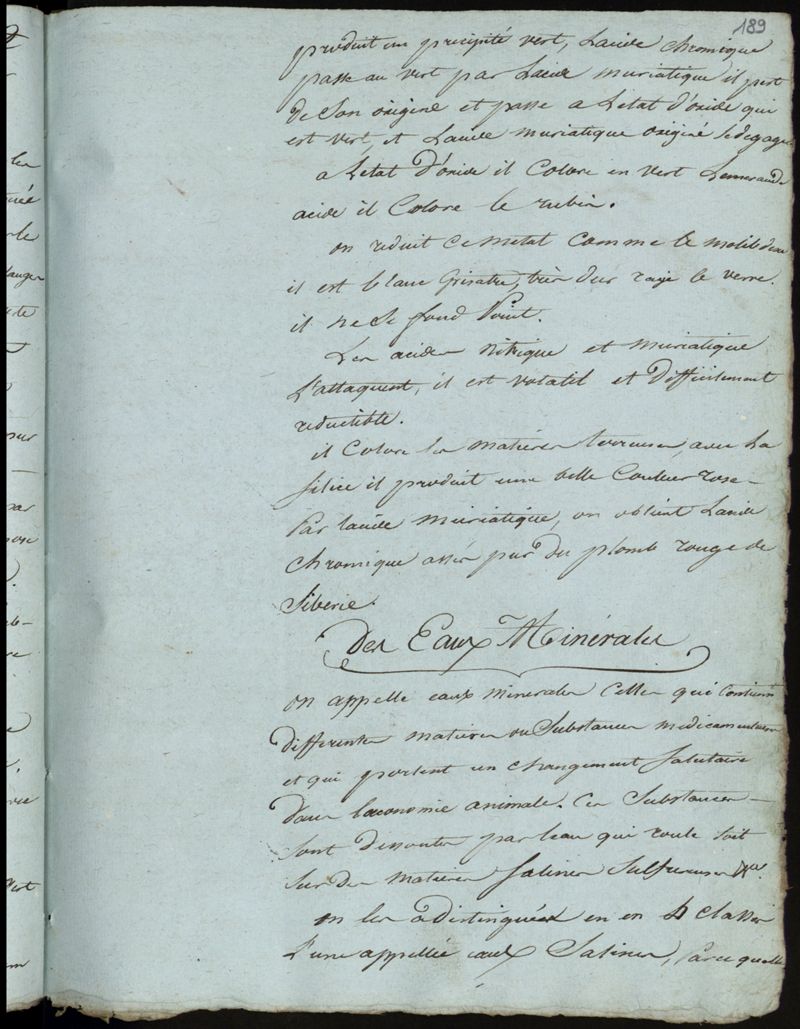 189
produit un precipité vert, Lacide chromique
passe au vert par Lacide muriatique il pert
de son oxigene et passe a Letat d'oxide qui
est vert, et Lacide muriatique oxigené se degage
a Letat d'oxide il Colore en vert Lemeraude
acide il Colore le rubin.
on reduit ce metal comme le molibdene
il est blanc Grisatre, très dur raye le verre.
il ne se fond Point.
Les acides nitrique et muriatique
L'attaquent, il est volatil et difficilement
reductible.
il Colore les matieres terreuses, avec La
silice il produit une belle Couleur rose —
Par lacide muriatique, on obtient Lacide
chromique assés pur du plomb rouge de
Siberie.
Des Eaux Minérales
on appelle eaux minerales Celles qui Contienn
differentes matieres ou Substances medicamenteuses
et qui portent un changement salutaire
dans lœconomie animale. Ces Substances —
sont dissoutes par leau qui roule soit
sur des matieres salines sulfureuses &ca.
on les a distinguées en en 4 classes
L'une appellée eaux Salines, Parce quelles
les
par